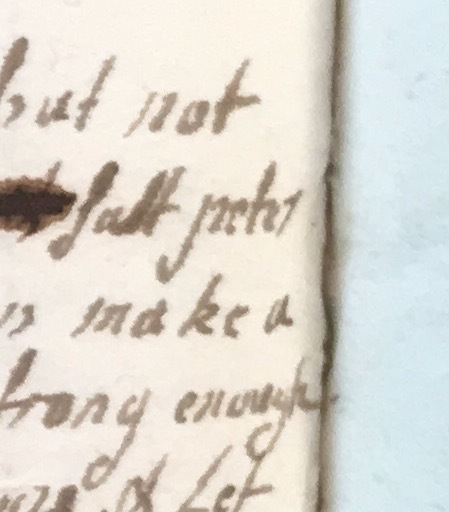 but not
Salt petr
make a
strong enough
& Let